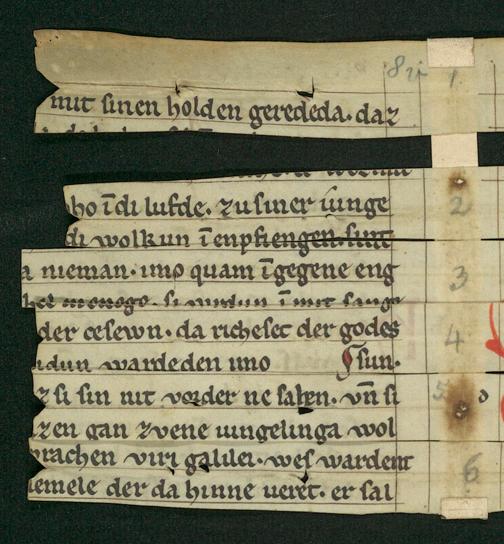 mit sinen holden gerededa· daz
ho īdi lufde· zu siner iunge
di wolkun īenpfiengen· sint
a nieman· imo quam īgegene eng
menege· si nudun ī mit sange
der cesewn· da richeset der godes
dun wardeden imo sun·
z si sin nit vorder ne sahen· vn̄ si
zen gan zvene iungelinga wol
rachen viri galilei· wes wardent
iemele der da hinne ueret· er sal
8 1
2
3
4
5
6